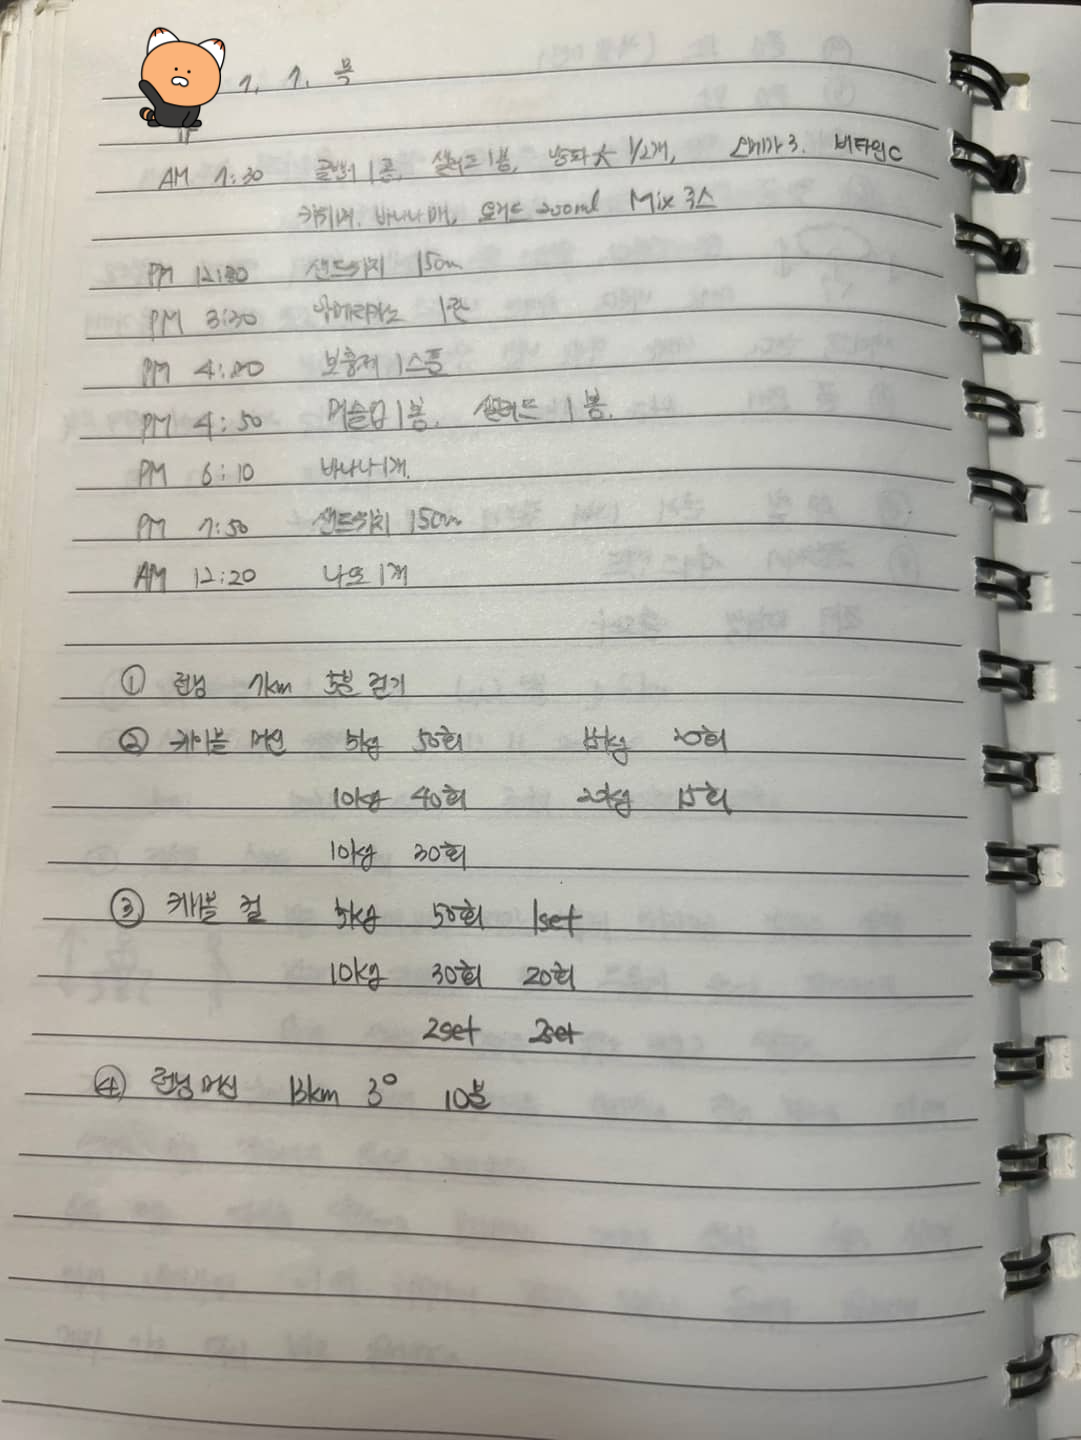 7. 7. 목
AM 7:30 1혼, 샐러드 1봉, 양파 大 1/2개, 오메가3. 비타민C
바나나 1개, 요거트 200ml Mix 주스
PM 12:20 샌드위치 15cm
PM 3:30 아메리카노 1잔
PM 4:20 보충제 1스푼
PM 4:50 머슬업 1봉. 샐러드 1봉.
PM 6:10 바나나 1개.
PM 7:50 샌드위치 15cm
AM 12:20 나또 1개
① 런닝 7km 걷기
② 케이블 머신 5kg 50회 15kg 20회
10kg 40회 20kg 15회
10kg 30회
③ 케이블 컬 5kg 50회 1set
10kg 30회 20회
2set 2set
④ 런닝머신 13km 3° 10분